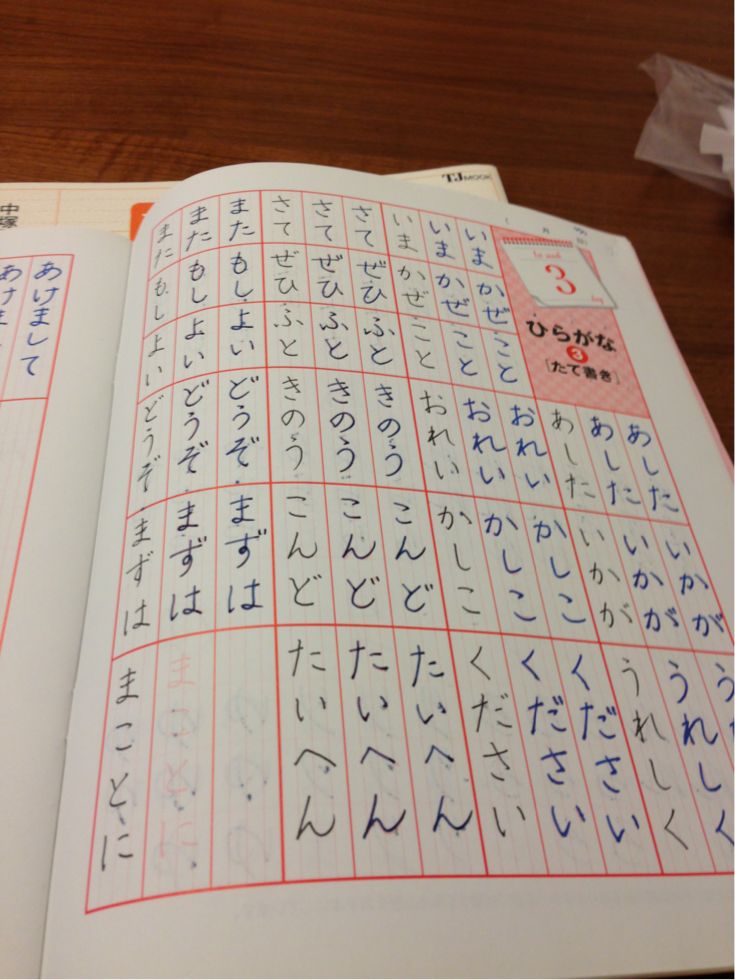 TJ MOOK
中塚
月 日
3
day
ひらがな
3
[たて書き]
あした いかが う
あした いかが うれしく
あした いかが うれしく
いま かぜ こと おれい かしこ ください
いま かぜ こと おれい かしこ ください
いま かぜ こと おれい かしこ ください
さて ぜひ ふと きのう こんど たいへん
さて ぜひ ふと きのう こんど たいへん
さて ぜひ ふと きのう こんど たいへん
また もし よい どうぞ まずは
また もし よい どうぞ まずは まことに
また もし よい どうぞ まずは まことに
あけまして
あけま